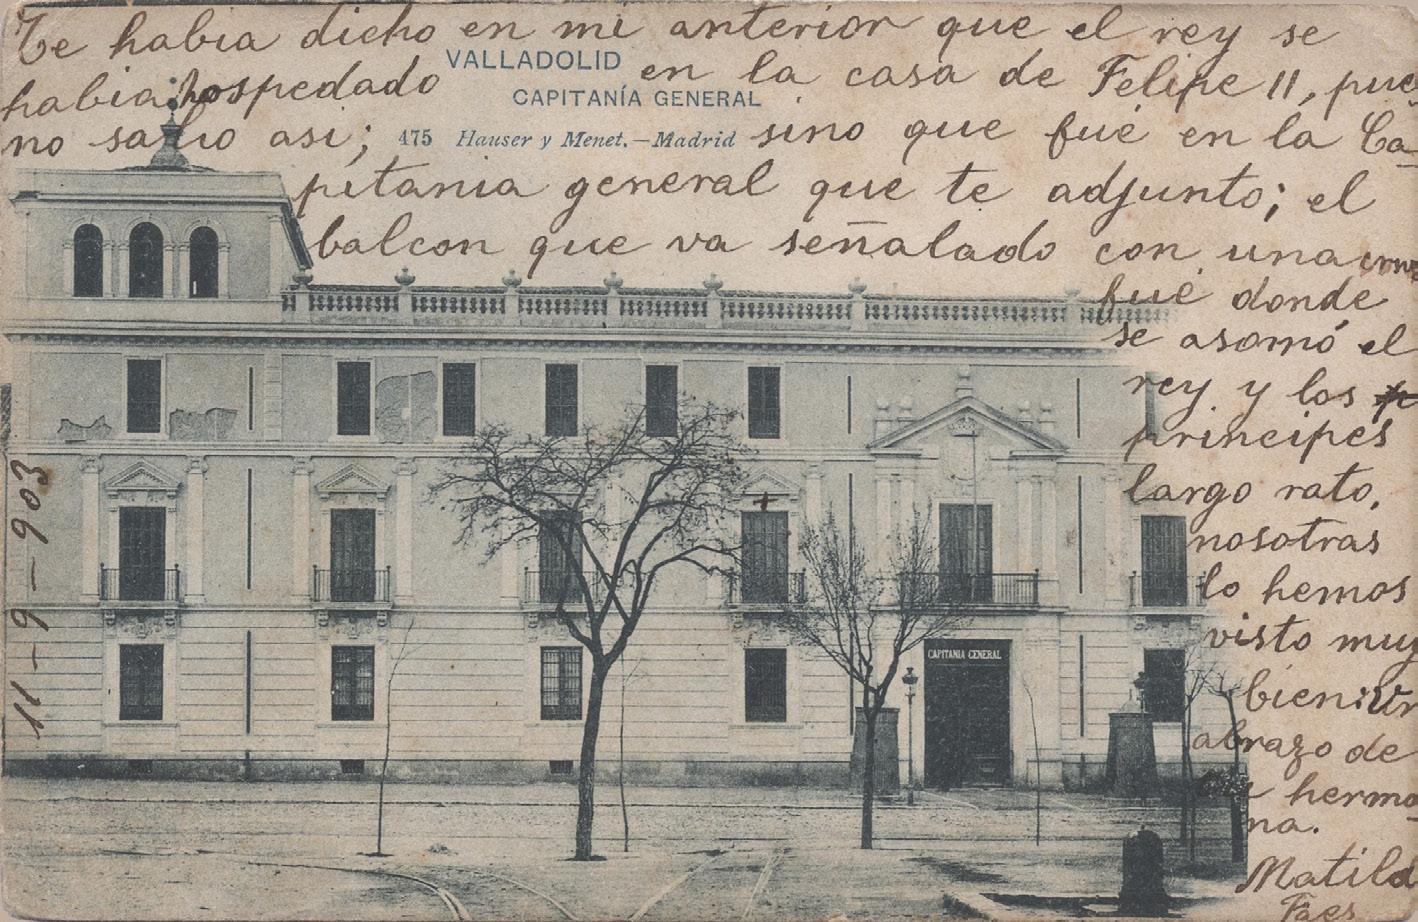 Te habia dicho en mi anterior que el rey se
VALLADOLID
habia hospedado en la casa de Felipe II, pues
CAPITANÍA GENERAL
no salio asi; sino que fué en la Ca-
475 Hauser y Menet.—Madrid
pitania general que te adjunto; el
balcon que va señalado con una cruz
fué donde
se asomó el
rey y los
principes
largo rato,
nosotras
lo hemos
visto muy
bien; Un
abrazo de
hermana
na.
Matild
Faes
CAPITANIA GENERAL
11-9-903